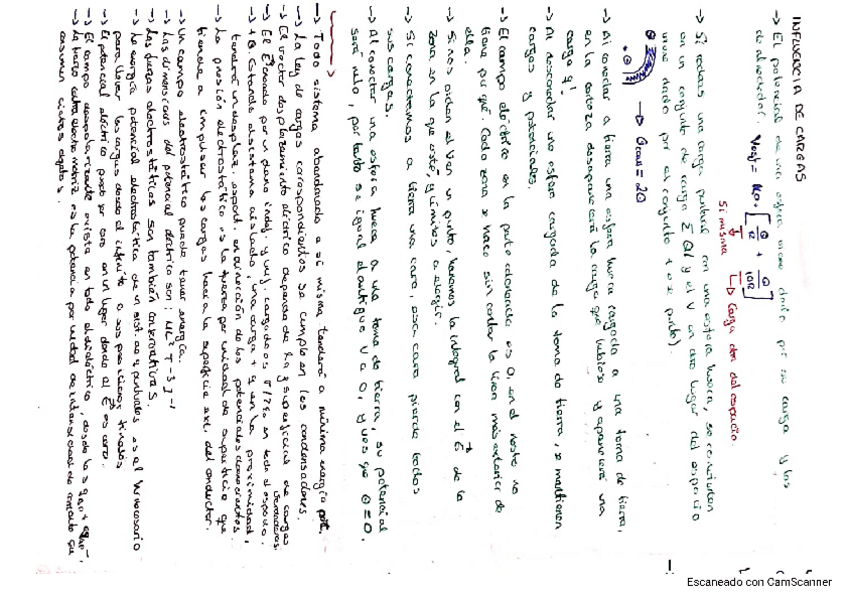 INFLUENCIA DE CARGAS
→ El potencial de una esfera viene dado por su carga y las
de alrededor.
Si misma
Carga den del espacio
→ Si rodeas una carga puntual con una esfera hueca, se convierten
en un conjunto de carga Σ Qi y el V en otro lugar del espacio
viene dado por el conjunto
→ Q = 2Q
→ Al conectar a tierra una esfera hueca cargada a una toma de tierra,
en la corteza desaparecerá la carga que hubiese y aparecerá una
carga q'
→ Al desconectar una esfera cargada de la toma de tierra, se mantienen
cargas y potenciales.
→ El campo eléctrico en la parte es 0, en el resto no
tiene por qué. Cada zona se hace sin contar la línea más exterior de
ella.
→ Si nos piden el V en un punto, hacemos la integral con el E de la
zona en la que esté, y límites a elegir.
→ Si conectamos a tierra una cara, esa cara pierde todas
sus cargas.
→ Al conectar una esfera hueca a una toma de tierra, su potencial
será nulo, por tanto se igual el antiguo V a 0, y ves que Q = 0.
→ Todo sistema abandonado a si mismo tenderá a mínima energía pot.
→ La ley de cargas correspondientes se cumple en los condensadores.
→ El vector desplazamiento eléctrico depende de la superficial de cargas
→ El E creado por un plano indef. y unif. cargado es σ/2ε₀ en todo el espacio.
→ Estando el sistema aislado, una carga q en la proximidad,
tenderá un desplaz. espont. en dirección de los potenciales
→ La presión electrostática es la fuerza por unidad de superficie que
tiende a empujar las cargas hacia la superficie ext. del conductor.
→ Un campo electrostático puede tener energía
→ Las dimensiones del potencial eléctrico son: ML²T⁻³I⁻¹
→ Las fuerzas electrostáticas son también conservativas.
→ La energía potencial electrostática de un sist. de q puntuales es el W necesario
para llevar las cargas desde el infinito a sus posiciones finales
→ El potencial eléctrico puede ser cero en un lugar donde el E es cero.
→ El campo despolarizante existe en todo el dieléctrico, desde la
→ La fuerza electromotriz es la potencia por unidad de intensidad de corriente que